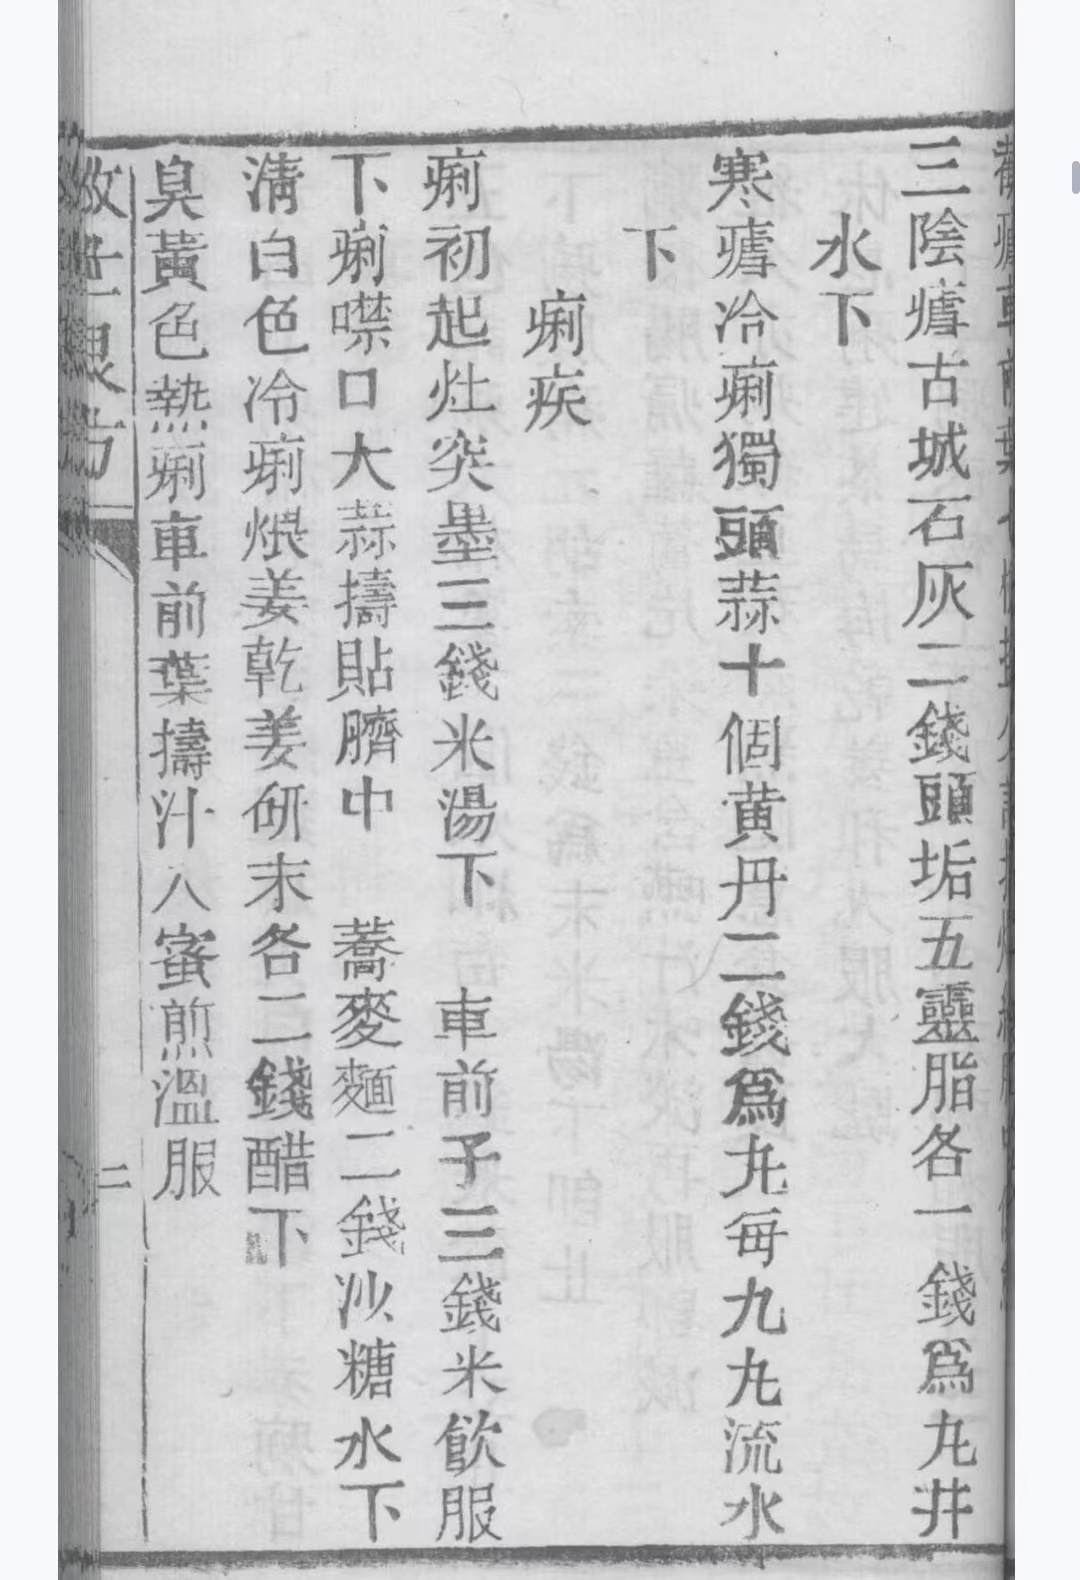 三陰瘧古城石灰二錢頭垢五靈脂各一錢爲丸井
水下
寒瘧冷痢獨頭蒜十個黄丹二錢爲丸每九丸流水
下
痢疾
痢初起灶突墨三錢米湯下　車前子三錢米飲服
下痢噤口大蒜擣貼臍中　蕎麥麵二錢沙糖水下
淸白色冷痢煨姜乾姜研末各二錢醋下
臭黃色熱痢車前葉擣汁入蜜煎溫服
良方
二